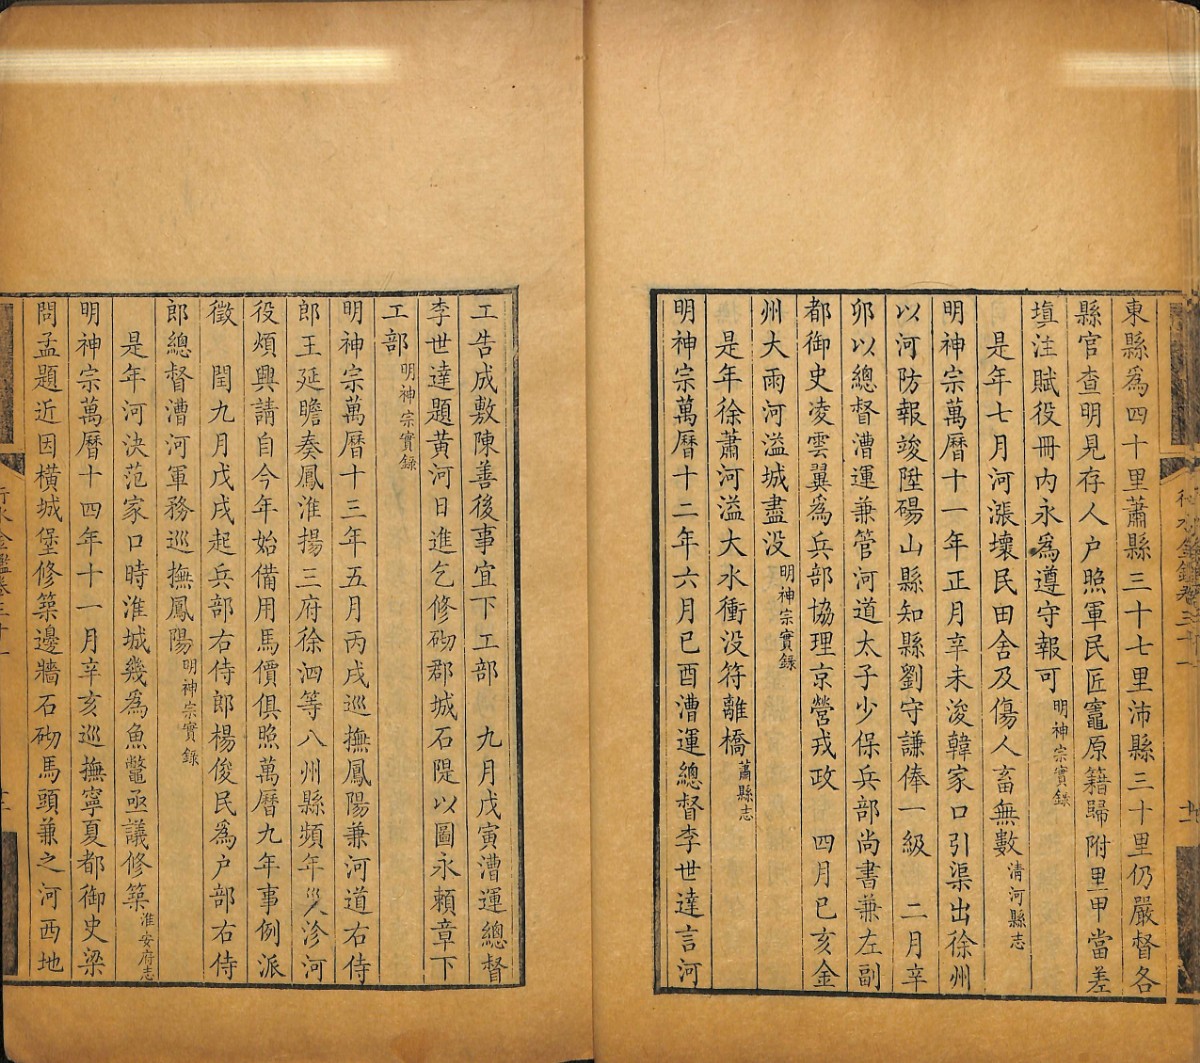 東縣爲四十里蕭縣三十七里沛縣三十里仍嚴督各
縣官查明見存人户照軍民匠竈原籍歸附里甲當差
塡注賦役冊内永爲遵守報可明神宗實錄
是年七月河漲壞民田舍及傷人畜無數清河縣志
明神宗萬曆十一年正月辛未浚韓家口引渠出徐州
以河防報竣陞碭山縣知縣劉守謙俸一級 二月辛
卯以總督漕運兼管河道太子少保兵部尚書兼左副
都御史凌雲翼爲兵部協理京營戎政 四月巳亥金
州大雨河溢城盡没明神宗實錄
是年徐蕭河溢大水衝没符離橋蕭縣志
明神宗萬曆十二年六月巳酉漕運總督李世達言河
工告成敷陳善後事宜下工部 九月戊寅漕運總督
李世達題黄河日進乞修砌郡城石隄以圖永賴章下
工部明神宗實錄
明神宗萬曆十三年五月丙戌巡撫鳳陽兼河道右侍
郎王延瞻奏鳳淮揚三府徐泗等八州縣頻年災沴河
役煩興請自今年始備用馬價俱照萬曆九年事例派
徵 閏九月戊戌起兵部右侍郎楊俊民爲户部右侍
郎總督漕河軍務巡撫鳳陽明神宗實錄
是年河決范家口時淮城幾爲魚鼈亟議修築淮安府志
明神宗萬曆十四年十一月辛亥巡撫寧夏都御史梁
問孟題近因橫城堡修築邊牆石砌馬頭兼之河西地